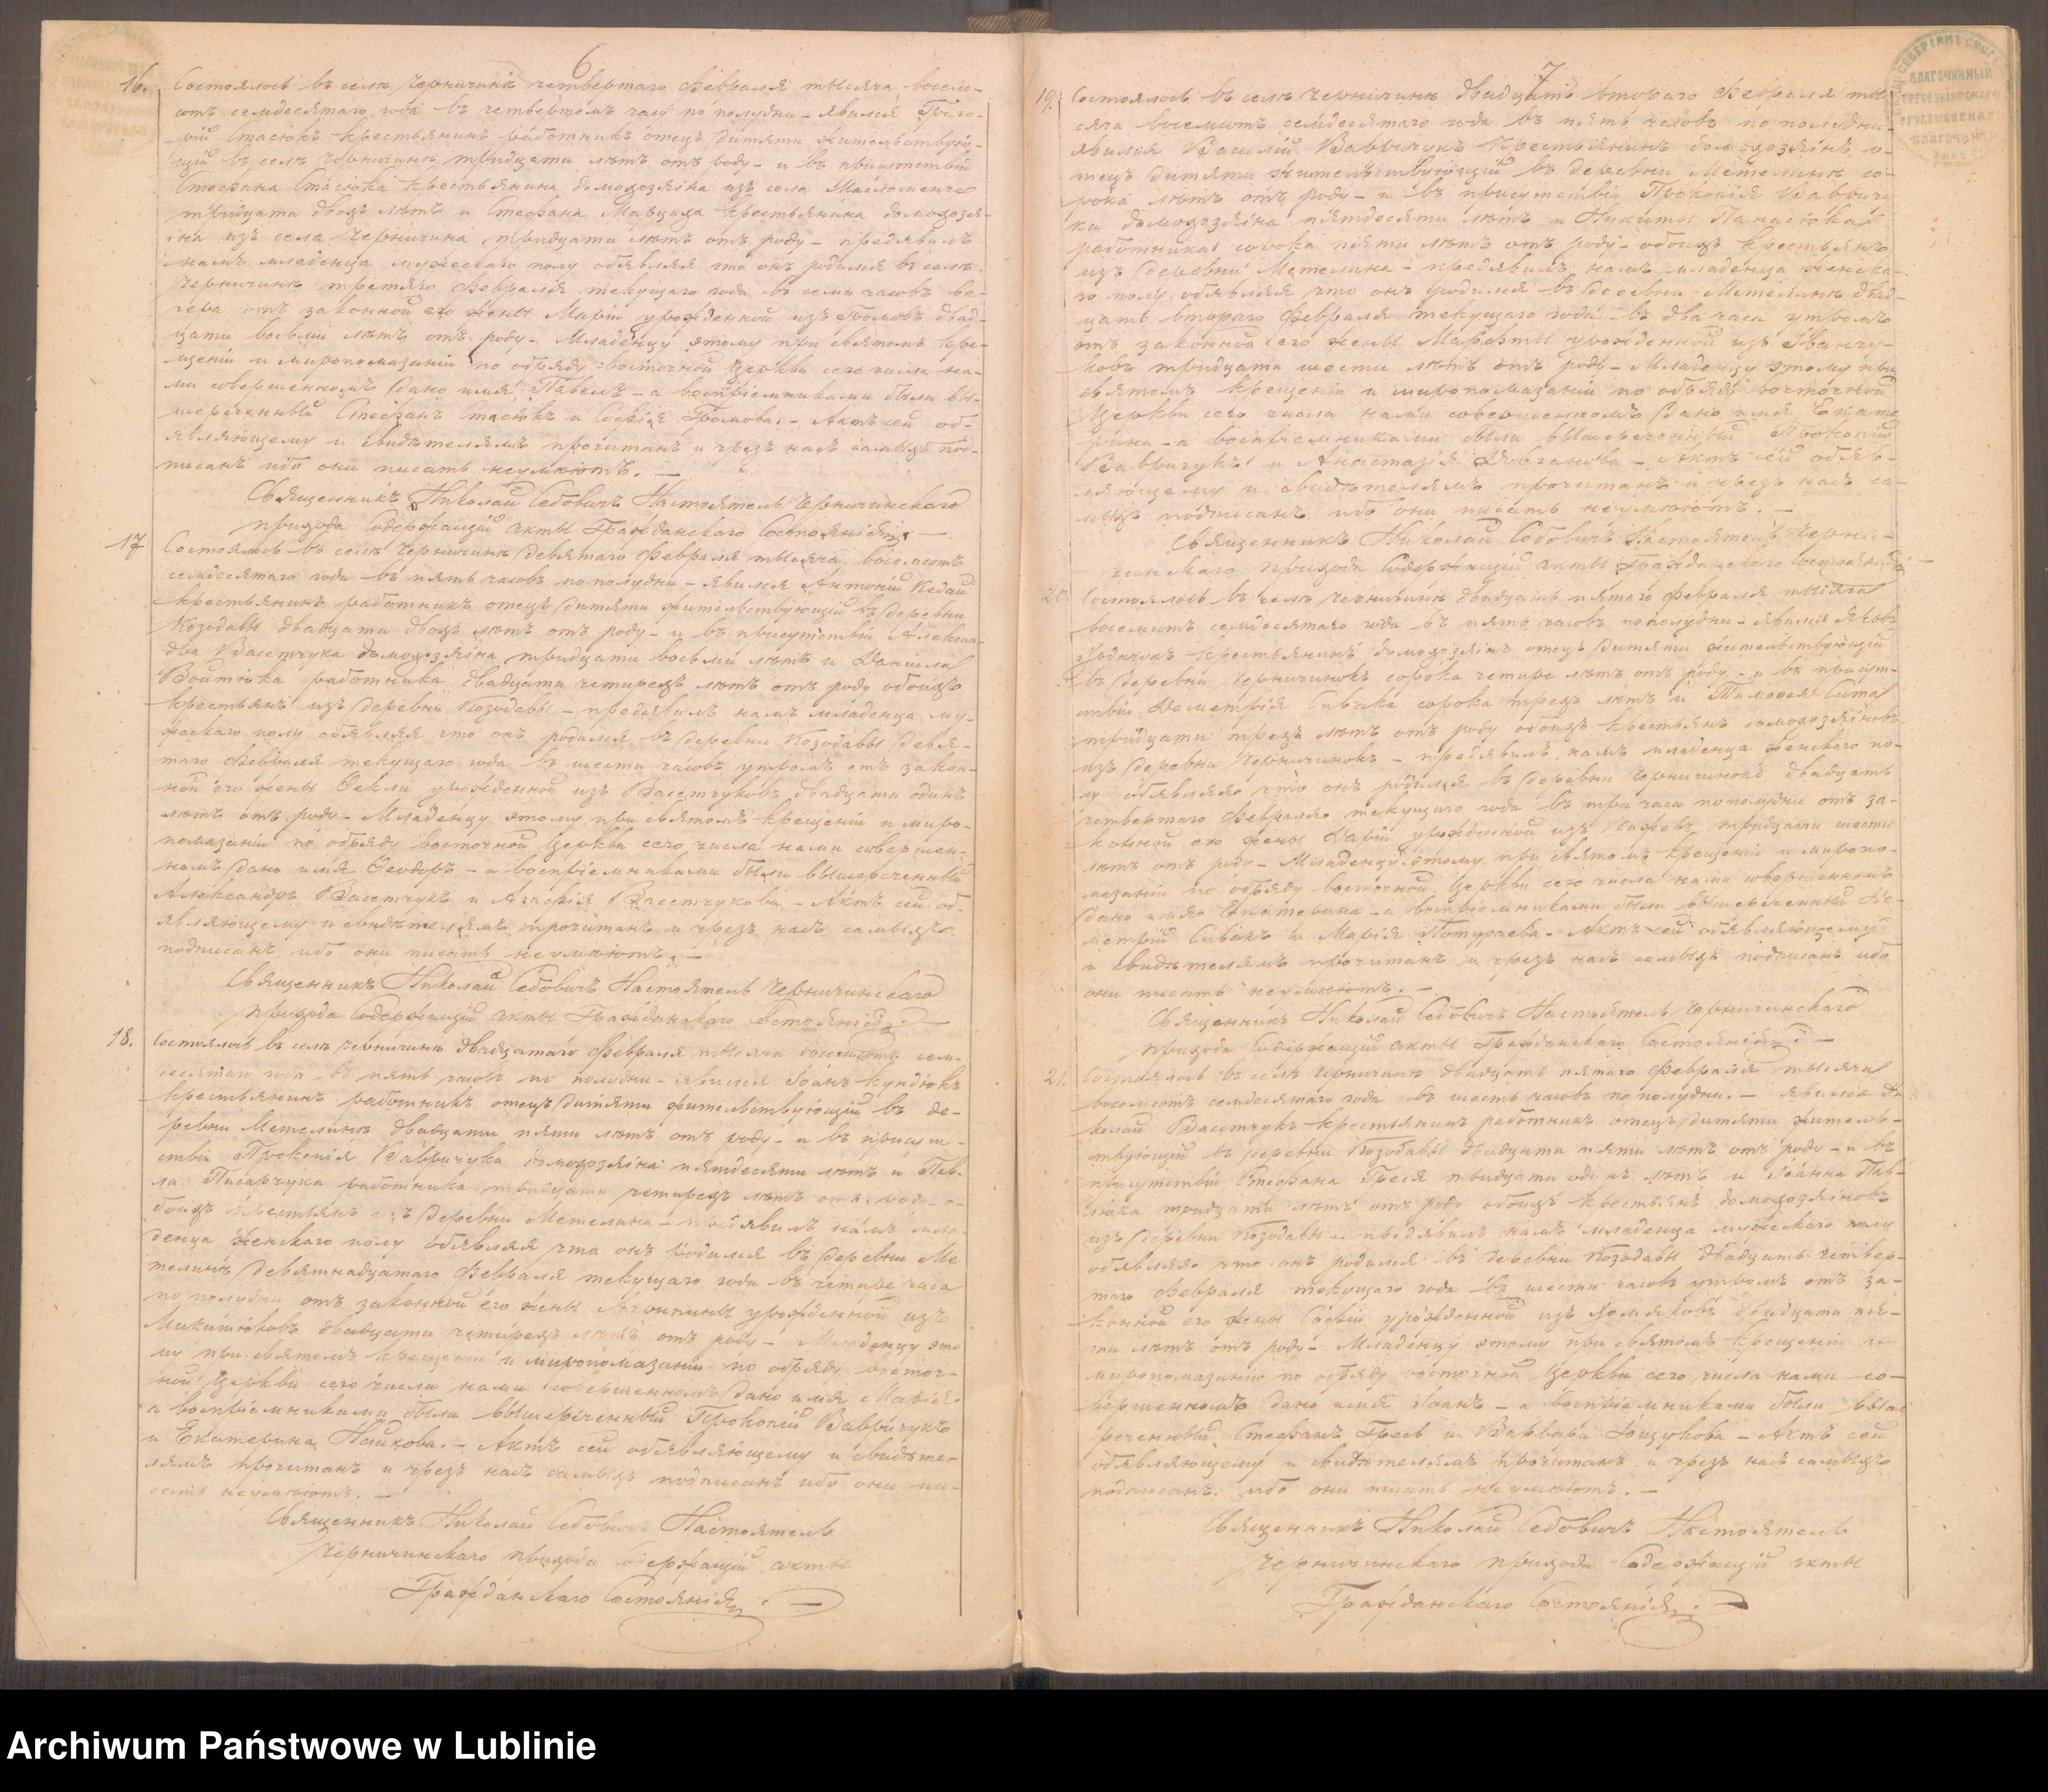 6
16. Состоялось въ селѣ Черничинѣ четвертаго Февраля тысяча восем-
сотъ семдесятаго года въ четвертомъ часу по полудни – явился
Стасюкъ крестьянинъ работникъ отецъ дитяти жительствую-
щій въ селѣ Черничинѣ тридцати лѣтъ отъ роду – и въ присутствіи
Стефана Стасюка крестьянина домохозяина изъ села Масломенче
тридцати двохъ лѣтъ и Стефана крестьянина домохозя-
ина изъ села Черничина тридцати лѣтъ отъ роду – предявилъ
намъ младенца мужескаго полу обявляя что онъ родился въ селѣ
Черничинѣ третяго Февраля текущаго года въ семи часовъ ве-
чера отъ законной его жены Маріи урожденной изъ Громовъ двад-
цати восьми лѣтъ отъ роду – Младенцу этому при святомъ кре-
щеніи и миропомазаніи по обряду восточной Церкви сего числа на-
ми совершенномъ дано имя Павелъ – а воспріемниками были вы-
шереченный Стефанъ Стасюкъ и Софія Громова. – Актъ сей об-
являющему и свидѣтелямъ прочитанъ и чрезъ насъ самыхъ под-
писанъ ибо они писать неумѣютъ. –
Священникъ Николай Седовичъ Настоятель Черничинскаго
прихода Содержащій акты Гражданскаго Состоянія
17 Состоялось въ селѣ Черничинѣ девятаго Февраля тысяча восемсотъ
семдесятаго года въ пять часовъ по полудни – явился Антоній Кедай
крестьянинъ работникъ отецъ дитяти жительствующій въ деревни
Козодавы двадцати двохъ лѣтъ отъ роду – и въ присутствіи Алексан-
дра Васетчука домохозяина тридцати восьми лѣтъ и Даніила
Войтюка работника двадцати четирехъ лѣтъ отъ роду обоихъ
крестьянъ изъ деревни Козодавы – предявилъ намъ младенца му-
жескаго полу обявляя что онъ родился въ деревни Козодавы девя-
таго Февраля текущаго года въ шести часовъ утромъ отъ закон-
ной его жены Фекли урожденной изъ Васетчуковъ двадцати одинъ
лѣтъ отъ роду – Младенцу этому при святомъ крещеніи и миро-
помазаніи по обряду восточной Церкви сего числа нами совершен-
номъ дано имя Феодоръ – а воспріемниками были вышереченный
Александръ Васетчукъ и Агафія Васетчукова – Актъ сей об-
являющему и свидѣтелямъ прочитанъ и чрезъ насъ самыхъ
подписанъ ибо они писать неумѣютъ. –
Священникъ Николай Седовичъ Настоятель Черничинскаго
прихода Содержащій акты Гражданскаго Состоянія
18. Состоялось въ селѣ Черничинѣ двадцатаго Февраля тысяча восемсотъ сем-
десятаго года въ пять часовъ по полудни – явился Іоанъ Кундюкъ
крестьянинъ работникъ отецъ дитяти жительствующій въ де-
ревни Метелинѣ двадцати пяти лѣтъ отъ роду – и въ присут-
ствіи Прокопія Вавричука домохозяина пятдесяти лѣтъ и Пав-
ла Писарчука работника тридцати четирехъ лѣтъ отъ роду о-
боихъ крестьянъ изъ деревни Метелина – предявилъ намъ мла-
денца женскаго полу обявляя что онъ родился въ деревни Ме
телинѣ девятнадцатаго Февраля текущаго года въ четире часа
по полудни отъ законной его жены Агрипины урожденной изъ
Микитюковъ двадцати четирехъ лѣтъ отъ роду – Младенцу это
му при святомъ крещеніи и миропомазаніи по обряду восточ-
ной Церкви сего числа нами совершенномъ дано имя Марія
а воспріемниками были вышереченный Прокопій Вавричукъ
и Екатерина – Актъ сей обявляющему и свидѣте-
лямъ прочитанъ и чрезъ насъ самыхъ подписанъ ибо они пи-
сать неумѣютъ. –
Священникъ Николай Седовичъ Настоятель
Черничинскаго прихода Содержащій акты
Гражданскаго Состоянія
7
19. Состоялось въ селѣ Черничинѣ двадцать втораго Февраля ты
сяча восемсотъ семдесятаго года въ пять часовъ по полудни –
явился Василій Вавричукъ крестьянинъ домохозяинъ о-
тецъ дитяти жительствующій въ деревни Метелинѣ со-
рока лѣтъ отъ роду – и въ присутствіи Прокопія Вавричу
ка домохозяина пятдесяти лѣтъ и Никиты Панасюка
работника сорока пяти лѣтъ отъ роду – обоихъ крестьянъ
изъ деревни Метелина – предявилъ намъ младенца женска-
го полу обявляя что онъ родился въ деревни Метелинѣ двад-
цать втораго Февраля текущаго года въ два часа утромъ
отъ законной его жены Марфты урожденной изъ Иванчу-
ковъ тридцати шести лѣтъ отъ роду – Младенцу этому при
святомъ крещеніи и миропомазаніи по обряду восточной
Церкви сего числа нами совершенномъ дано имя Екате
рина – а воспріемниками были вышереченный Прокопій
Вавричукъ и Анастазія – Актъ сей обяв-
ляющему и свидѣтелямъ прочитанъ и чрезъ насъ са-
мыхъ подписанъ ибо они писать неумѣютъ. –
Священникъ Николай Седовичъ Настоятель Черни-
чинскаго прихода Содержащій акты Гражданскаго Состоянія
20. Состоялось въ селѣ Черничинѣ двадцать пятаго Февраля тысяча
восемсотъ семдесятаго года въ пять часовъ по полудни – явился Яковъ
крестьянинъ домохозяинъ отецъ дитяти жительствующій
въ деревни Черничинокъ сорока четире лѣтъ отъ роду – и въ присут-
ствіи Деметрія Сивака сорока трехъ лѣтъ и Тимофея
тридцати трехъ лѣтъ отъ роду обоихъ крестьянъ домохозяиновъ
изъ деревни Черничинокъ – предявилъ намъ младенца женскаго по-
лу обявляя что онъ родился въ деревни Черничинокъ двадцать
четвертаго Февраля текущаго года въ три часа по полудни отъ за-
конной его жены Даріи урожденной изъ тридцати шести
лѣтъ отъ роду – Младенцу этому при святомъ крещеніи и миропо-
мазаніи по обряду восточной Церкви сего числа нами совершенномъ
дано имя Екатерина – а воспріемниками были вышереченный Де-
метрій Сивакъ и Марія Потураева – Актъ сей обявляющему
и свидѣтелямъ прочитанъ и чрезъ насъ самыхъ подписанъ ибо
они писать неумѣютъ. –
Священникъ Николай Седовичъ Настоятель Черничинскаго
прихода Содержащій акты Гражданскаго Состоянія
21. Состоялось въ селѣ Черничинѣ двадцать пятаго Февраля тысяча
восемсотъ семдесятаго года въ шесть часовъ по полудни. – явился Ни
колай Васетчукъ крестьянинъ работникъ отецъ дитяти житель-
ствующій въ деревни Козодавы двадцати пяти лѣтъ отъ роду – и въ
присутствіи Стефана Греся тридцати одинъ лѣтъ и Іоанна Пав-
люка тридцати лѣтъ отъ роду обоихъ крестьянъ домохозяиновъ
изъ деревни Козодавы – предявилъ намъ младенца мужескаго полу
обявляя что онъ родился въ деревни Козодавы двадцать четвер-
таго Февраля текущаго года въ шести часовъ утромъ отъ за-
конной его жены Софіи урожденной изъ Хомяковъ двадцати пя-
ти лѣтъ отъ роду – Младенцу этому при святомъ крещеніи и
миропомазаніи по обряду восточной Церкви сего числа нами со-
вершенномъ дано имя Іоанъ – а воспріемниками были выше
реченный Стефанъ Гресь и Варвара – Актъ сей
обявляющему и свидѣтелямъ прочитанъ и чрезъ насъ самыхъ
подписанъ. ибо они писать неумѣютъ. –
Священникъ Николай Седовичъ Настоятель
Черничинскаго прихода Содержащій акты
Гражданскаго Состоянія
БЛАГОЧИННЫЙ
Archiwum Państwowe w Lublinie